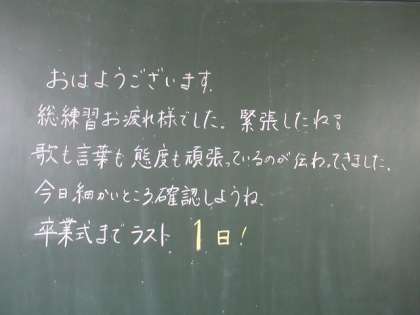 おはようございます.
総練習お疲れ様でした。緊張したね。
歌も言葉も態度も頑張っているのが伝わってきました.
今日細かいところ確認しようね.
卒業式までラスト 1日!